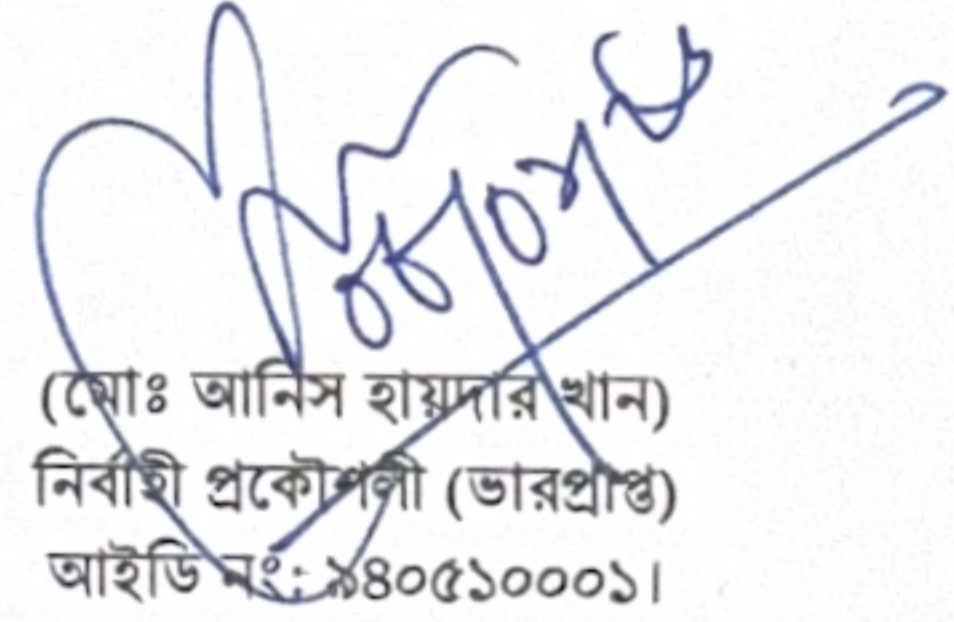 (মোঃ আনিস হায়দার খান)
নির্বাহী প্রকৌশলী (ভারপ্রাপ্ত)
আইডি নং: ৯৪০৫১০০০১।